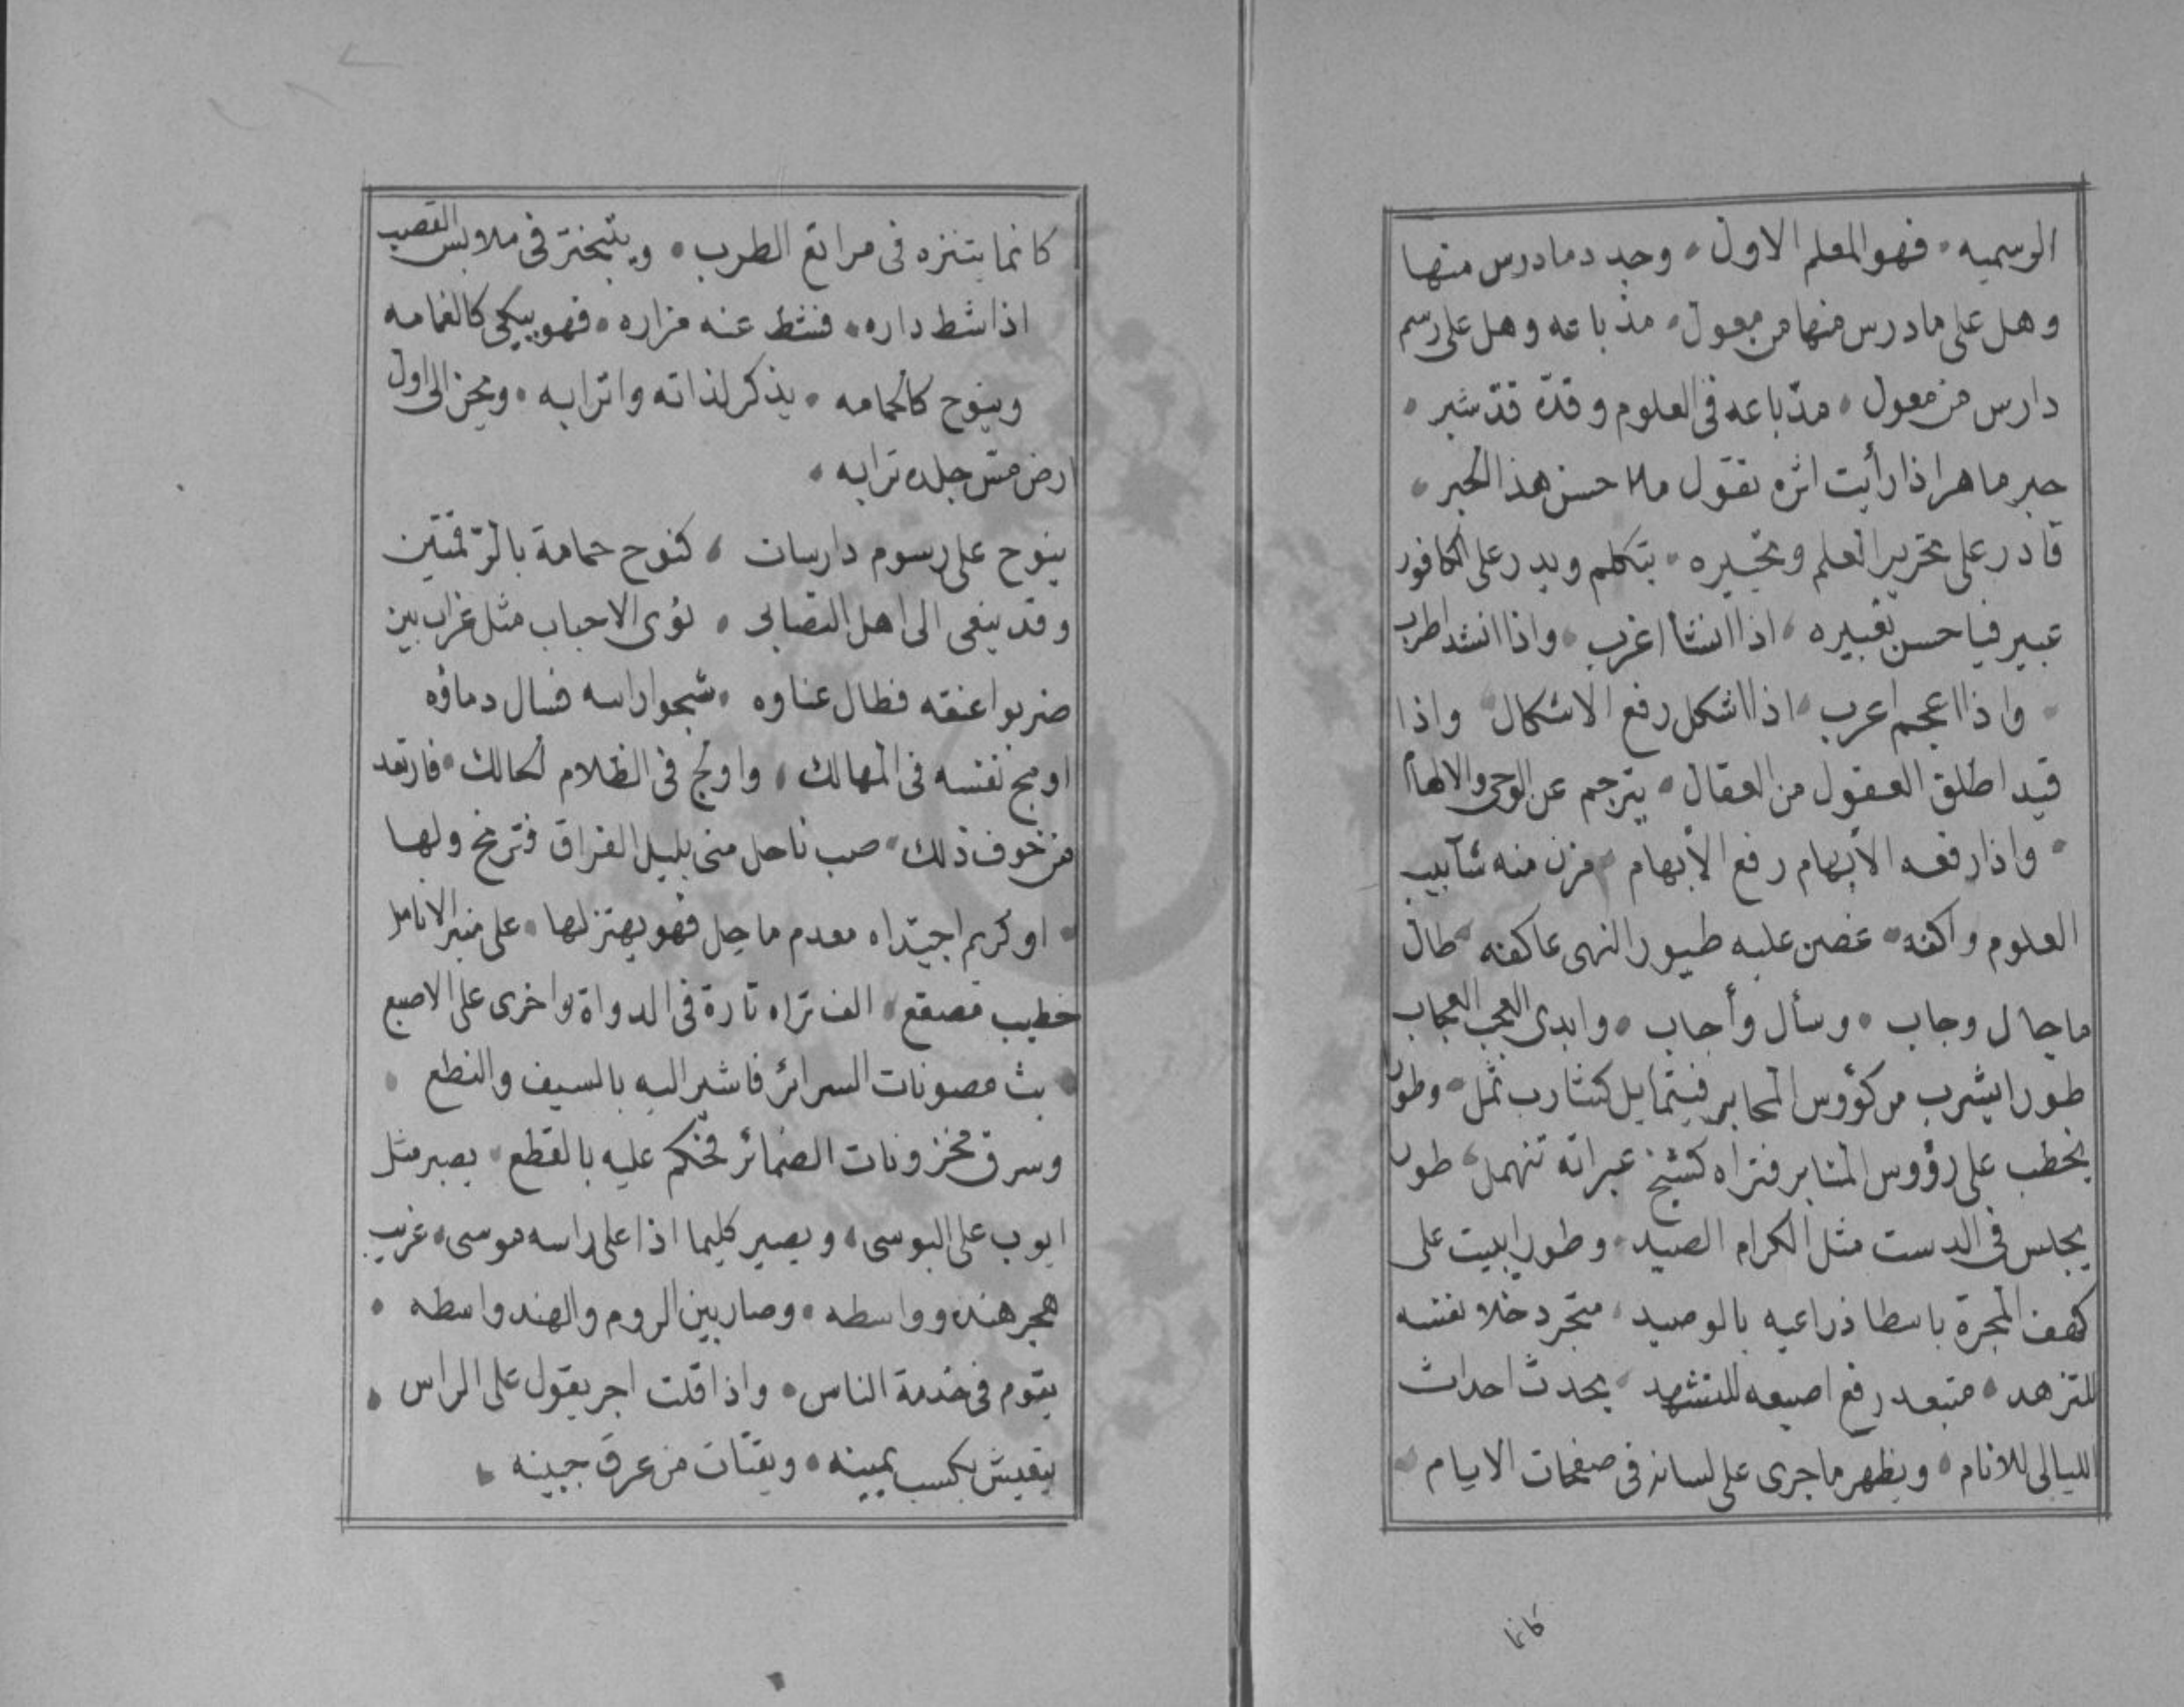 الرسميه • فهو المعلم الاول • وجد دما درس منها
وهل على ما درس منها من معول • مذ باعه وهل على رسم
دارس من معول • مدّ باعه فى العلوم وقدّه قدّ شبر •
حبر ماهر اذا رأيت اثره تقول ما احسن هذا الحبر •
قادر على تحرير العلم وتحبيره • يتكلم ويدر على الكافور
عبير فيا حسن تعبيره • اذا انشا اغرب • واذا انشد اطرب
• واذا اعجم اعرب • اذا اشكل رفع الاشكال • واذا
قيد اطلق العقول من العقال • يترجم عن الوحى والالهام
• واذا رفعه الأبهام رفع الأبهام • مزن منه شآبيب
العلوم واكفه • غصن عليه طيور النهى عاكفه • طال
ما جال وجاب • وسأل وأجاب • وابدى العجب العجاب
طورا يشرب من كؤوس المحابر فيتمايل كشارب ثمل • وطورا
يخطب على رؤوس المنابر فتراه كشيخ عبراته تنهمل • طورا
يجلس فى الدست مثل الكرام الصيد • وطورا يبيت على
كهف المجرة باسطا ذراعيه بالوصيد • متجرد خلا نفسه
للتزهد • متبعد رفع اصبعه للتشهد • يحدث احداث
الليالى للانام • ويظهر ما جرى على لسانه فى صفحات الايام •
كانما
كانما يتنزه فى مراتع الطرب • ويتبختر فى ملابس القصب
اذا شط داره • فشط عنه مزاره • فهو يبكى كالغمامه
وينوح كالحمامه • يذكر لذاته واترابه • ويحن الى اول
ارض مسّ جلده ترابه •
ينوح على رسوم دارسات • كنوح حمامة بالرّقمتين
وقد ينعى الى اهل التصابى • نوى الاحباب مثل غراب بين
ضربوا عنقه فطال عناوه • شجوا راسه فسال دماؤه
او مج نفسه فى المهالك • واولج فى الظلام الحالك • فارتعد
من خوف ذلك • صب ناحل منى بليل الفراق فترنح ولها
• او كريم اجتداه معدم ما حل فهو يهتز لها • على منبر الانامل
خطيب مصقع • الف تراه تارة فى الدواة واخرى على الاصبع
• بث مصونات السرائر فاشير اليه بالسيف والنطع •
وسرق مخزونات الضمائر فحكم عليه بالقطع • يصبر مثل
ايوب على البوسى • ويصير كليما اذا على راسه موسى • غريب
هجر هنده وواسطه • وصار بين الروم والهند واسطه •
يقوم فى خدمة الناس • واذا قلت اجر يقول على الراس •
يتعيش بكسب يمينه • ويقتات من عرق جبينه •